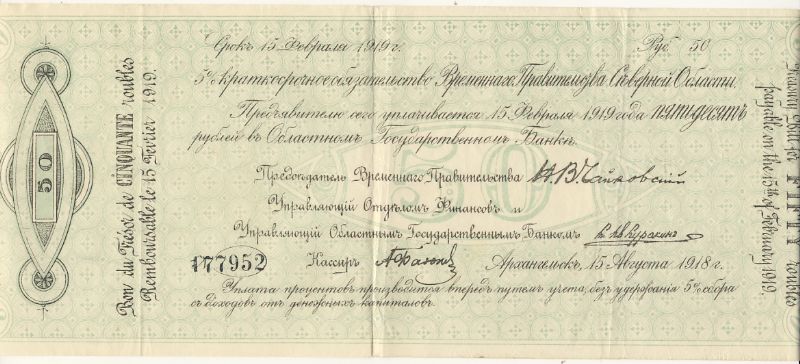 Срокъ 15 Февраля 1919 г. Руб. 50
5% краткосрочное обязательство Временнаго Правительства Сѣверной Области.
Предъявителю сего уплачивается 15 Февраля 1919 года пятьдесятъ
рублей въ Областномъ Государственномъ Банкѣ.
Предсѣдатель Временнаго Правительства Н. В. Чайковскій
Управляющій Отдѣломъ Финансовъ и
Управляющій Областнымъ Государственнымъ Банкомъ
177952 Кассиръ Архангельскъ, 15 Августа 1918 г.
Уплата процентовъ производится впередъ путемъ учета, безъ удержанія 5% сбора
съ доходовъ отъ денежныхъ капиталовъ.
50
50
Bon du Trésor de CINQUANTE roubles
Remboursable le 15 Février 1919.
Treasury Bill for FIFTY roubles
payable on the 15th of February 1919.